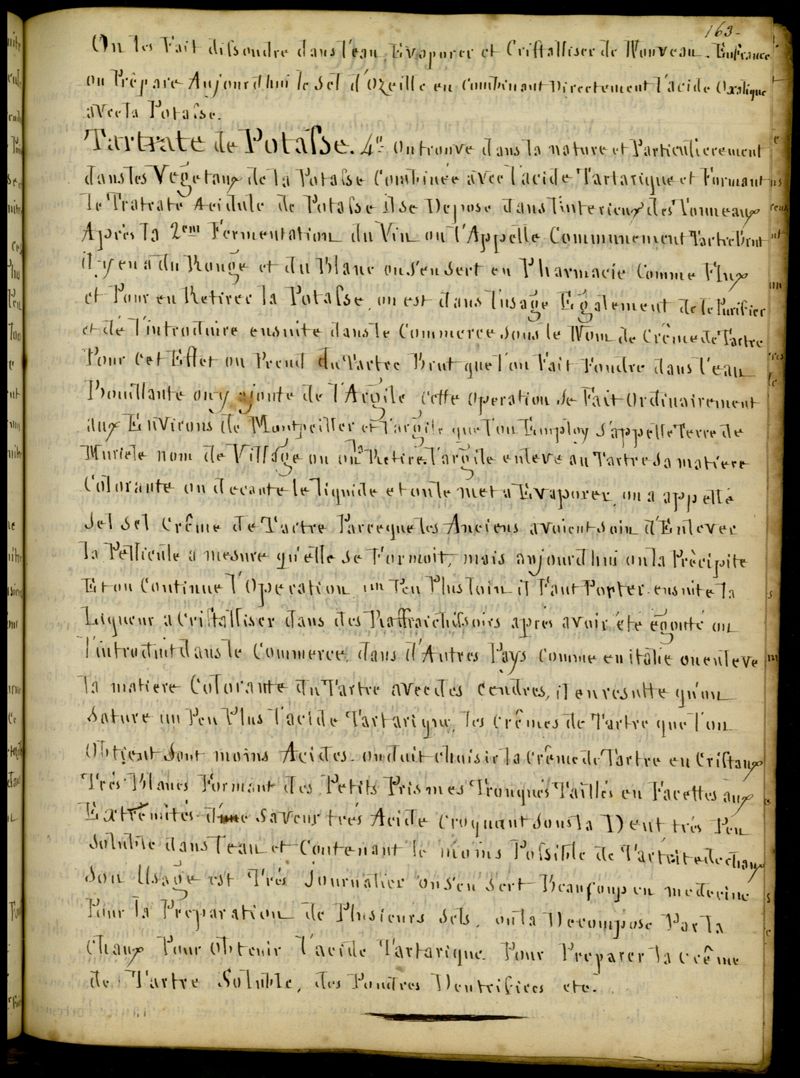 163-
On les Fait dissoudre dans l'eau Evaporer et Cristalliser de Nouveau. En France
on Prépare Aujourd'hui le Sel d'Ozeille en Combinant Directement l'acide Oxalique
avec la Potasse.
Tartrate de Potasse. 4º On trouve dans la nature et Particulierement
dans les Vegetaux de la Potasse Combinée avec l'acide Tartarique et Formant
le Tratrate Acidule de Potasse il se Depose dans l'interieux des Tonneaux
Après la 2eme Fermentation du Vin on l'Appelle Communement Tartre Brut
il y en a du Rouge et du Blanc on s'en sert en Pharmacie Comme Flux
et Pour en Retirer la Potasse, on est dans l'usage Egalement de le Purifier
et de l'introduire ensuite dans le Commerce sous le Nom de Crême de Tartre
Pour Cet Effet on Prend du Tartre Brut que l'on Fait Fondre dans l'eau
Bouillante on y ajoute de l'Argile cette Operation se Fait Ordinairement
aux Environs de Montpellier et l'argile que l'on Employ s'appelle Terre de
Muriele nom de Village ou on Retire l'argile enleve au Tartre sa matiere
Colorante on decante le liquide et on le met a Evaporer, on a appellé
Sel Crême de Tartre Parceque les Anciens avoient soin d'Enlever
la Pellicule a mesure qu'elle se Formoit, mais aujourd'hui on la Précipite
Et on Continue l'Operation un Peu Plus loin il Faut Porter ensuite la
Liqueur a Cristalliser dans des Raffraichissoirs après avoir été egouté on
l'introduit dans le Commerce, dans d'Autres Pays Comme en italie on enleve
la matiere Colorante du Tartre avec des Cendres, il en resulte qu'on
Sature un Peu Plus l'acide Tartarique, les Crêmes de Tartre que l'on
Obtient Sont moins Acides. on doit choisir la Crême de Tartre en Cristaux
Très Blancs Formant des Petits Prismes Tronqués Taillés en Facettes aux
Extremités d'une Saveur très Acide Croquant sous la Dent très Peu
Soluble dans l'eau et Contenant le moins Possible de Tartrite de chaux
Son Usage est Très Journalier on s'en sert Beaucoup en medecine
Pour la Preparation de Plusieurs Sels, on la Decompose Par la
Chaux Pour Obtenir l'acide Tartarique. Pour Preparer la Crême
de Tartre Soluble, des Poudres Dentrifices etc.